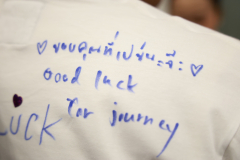 ขอบคุณที่เป่ขันะจ๊ะ
Good luck
for journey
LUCK